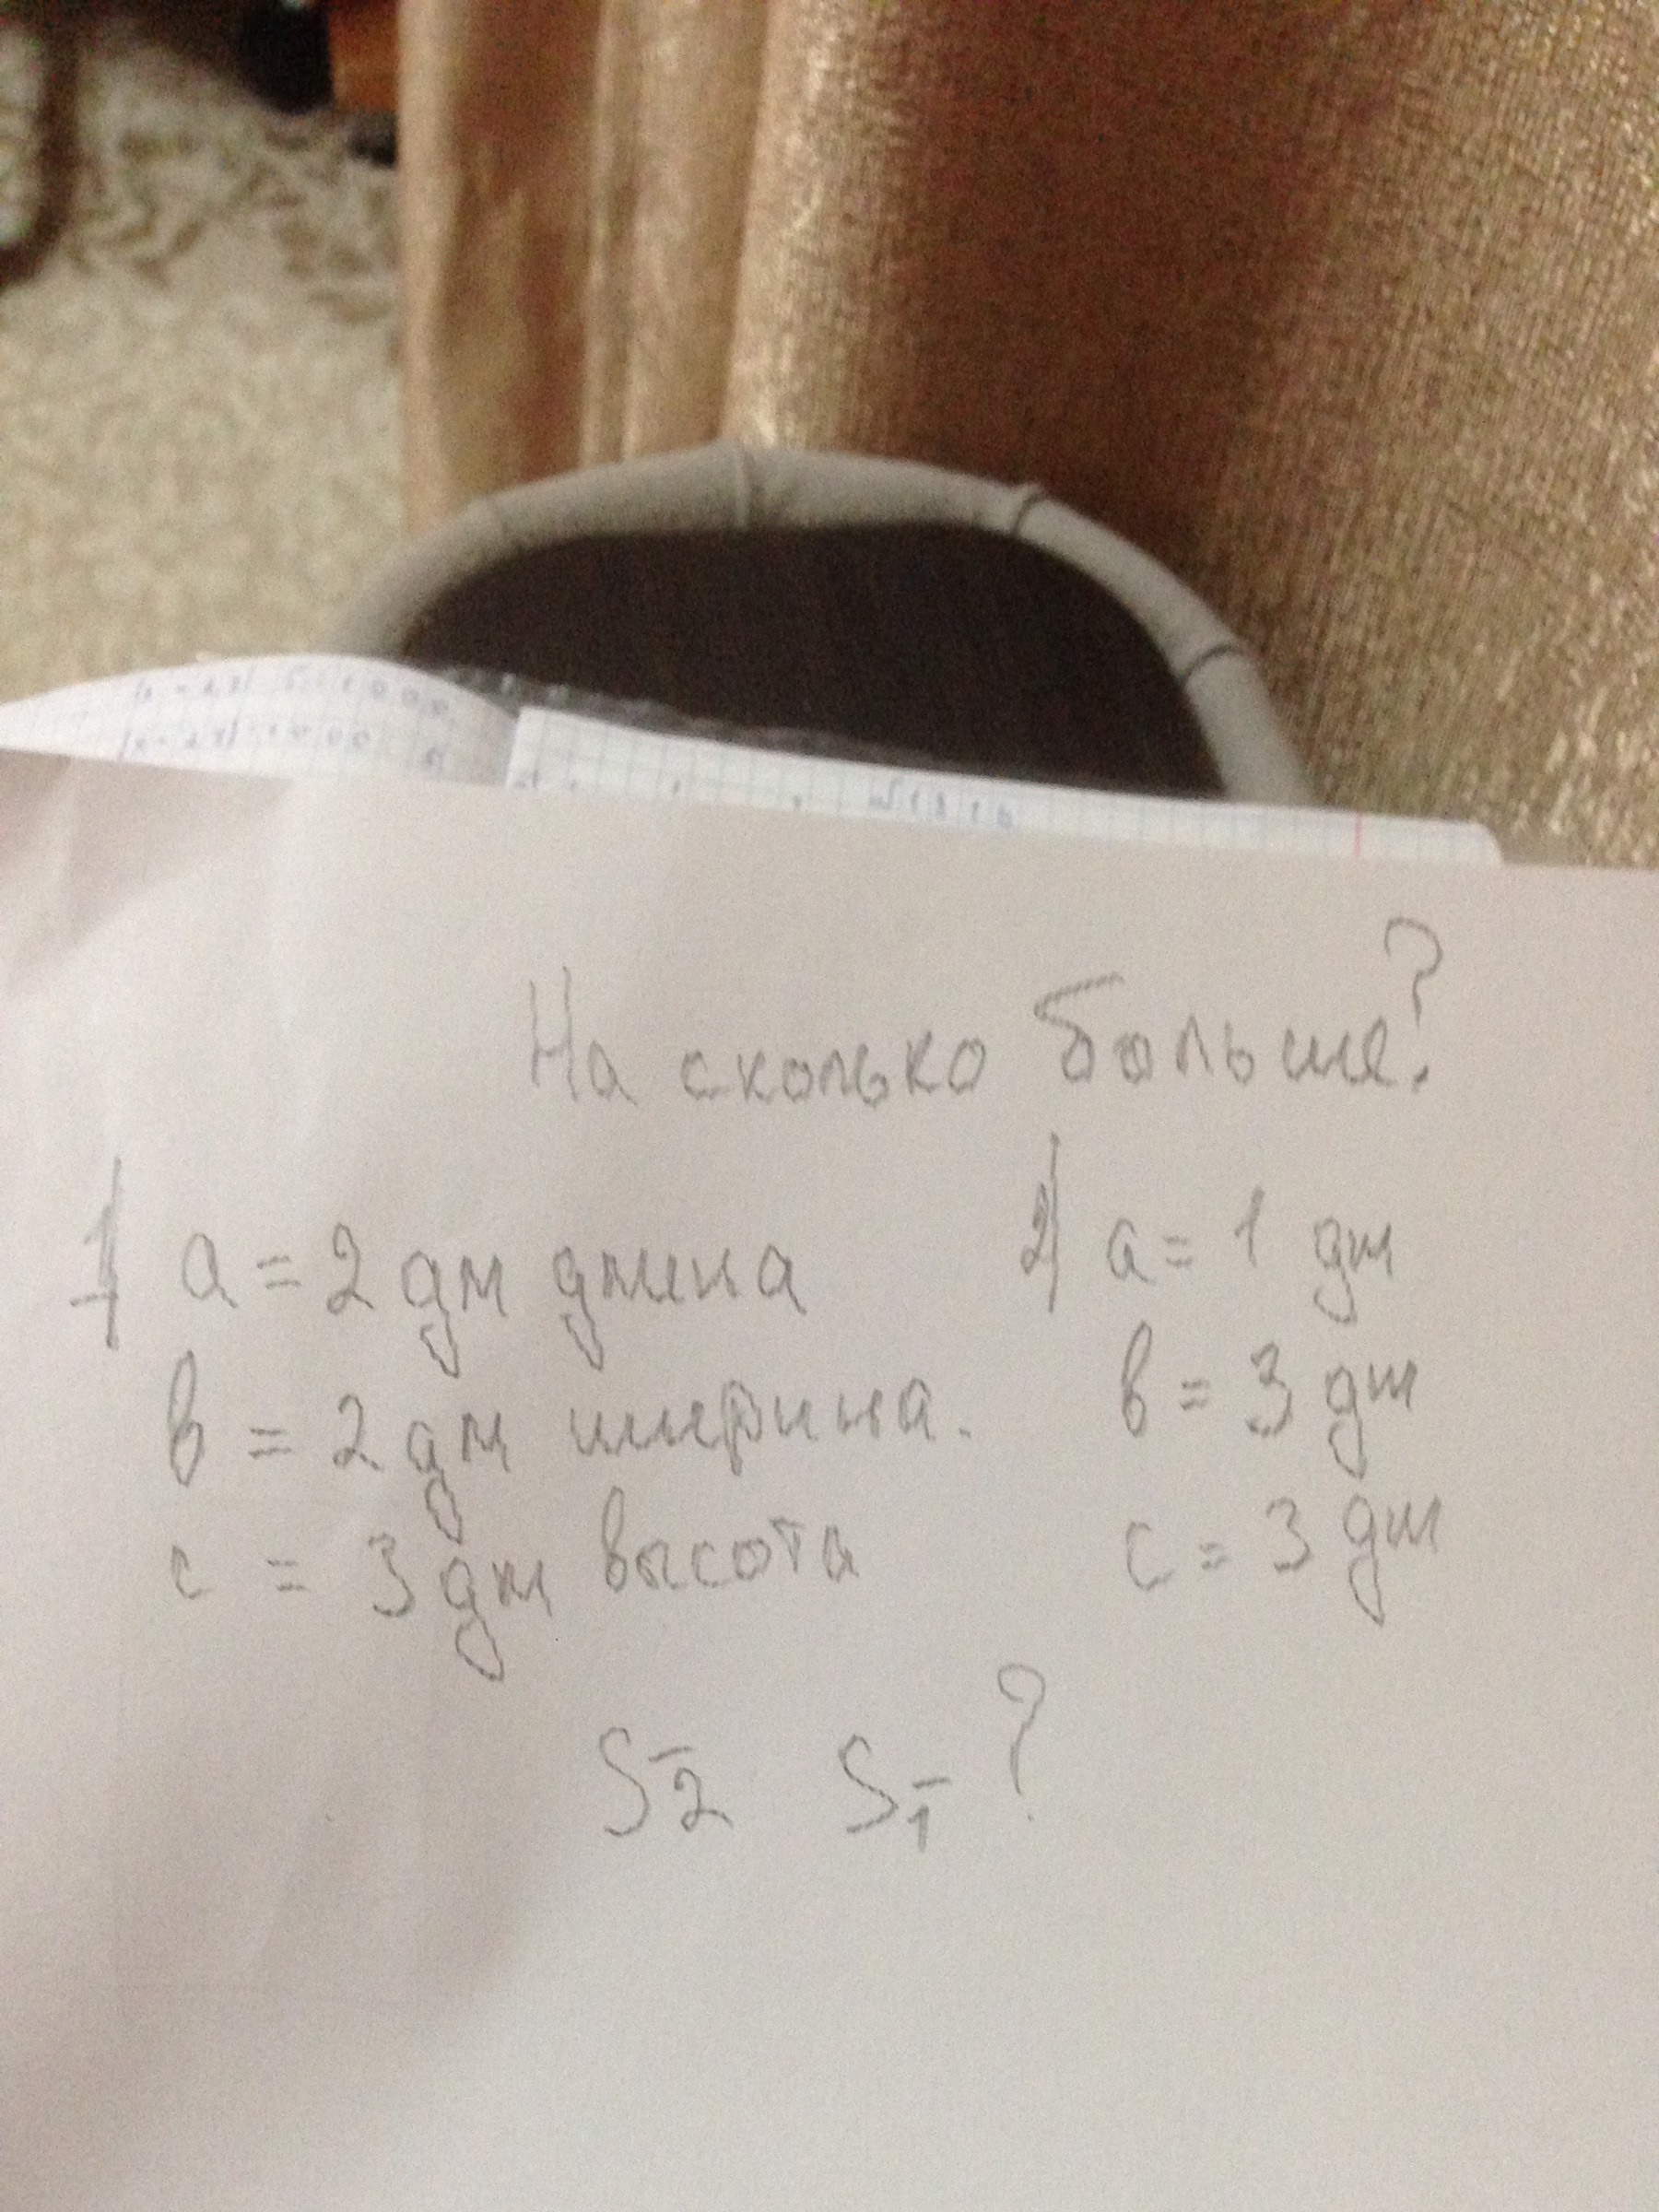 На сколько больше?
1) a = 2 дм длина
в = 2 дм ширина.
c = 3 дм высота
2) a = 1 дм
в = 3 дм
c = 3 дм
S2 S1 ?